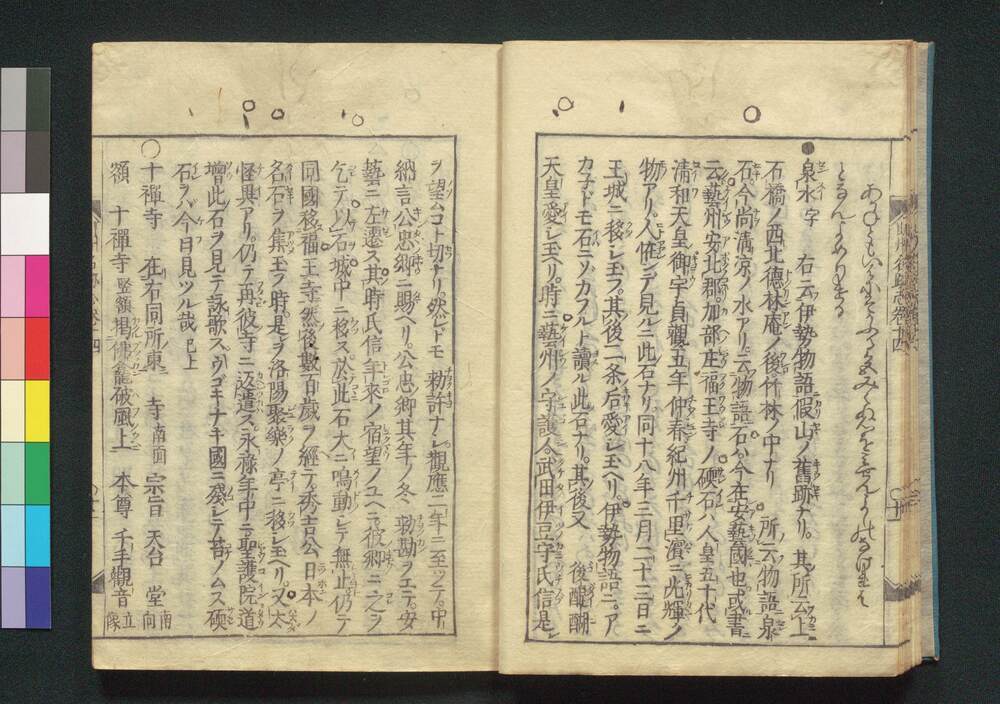 泉水 字 右ニ云伊勢物語假山ノ舊跡ナリ。其所云上
石橋ノ西北德林庵ノ後竹林ノ中ナリ 所云物語泉
石今尚清涼ノ水アリ 云物語石今在安藝國也或書
云藝州安北郡加部庄福王寺ノ礀石ハ人皇五十代
清和天皇御宇貞觀五年仲春紀州千里濱ニ此輝ノ
物アリ。人恠シデ見ルニ此石ナリ。同十八年三月二十三日ニ
王城ニ移シ玉フ。其後二条ノ后愛シ玉ヘリ。伊勢物語ニ。ア
カ子ドモ石ニソカフルト讀ル此石ナリ。其後又 後醍醐
天皇愛シ玉ヘリ。時ニ藝州ノ守護人。武田伊豆守氏信是レ
ヲ望ムコト切ナリ然レドモ 勅許ナシ。觀應二年ニ至ツテ。中
納言公忠卿ニ賜ヘリ。公忠卿其年ノ冬 勅勘ヲエテ。安
藝ニ左遷ス其時氏信年來ノ宿望ノユヘニ彼卿ニ之ヲ
乞テ以石城中ニ移ス於此石大ニ鳴動シテ無止仍テ
同國移福王寺然後數百歳ヲ經テ秀吉公日本ノ
名石ヲ集玉ヲ時是ヲ洛陽聚樂ノ亭ニ移シ玉ヘリ。又大
怪異アリ。仍テ再彼寺ニ返遣ス永禄年中ニ聖護院道
增此石ヲ見テ詠歌ス ウゴキナキ國ニ殘レテ苔ノムス礀
石ヲバ今日見ツル哉 已上
十禪寺 在右同所東 寺南面 宗旨 天台 堂南向
額 十禪寺 竪額揭佛龕破風上 本尊 千手觀音立像